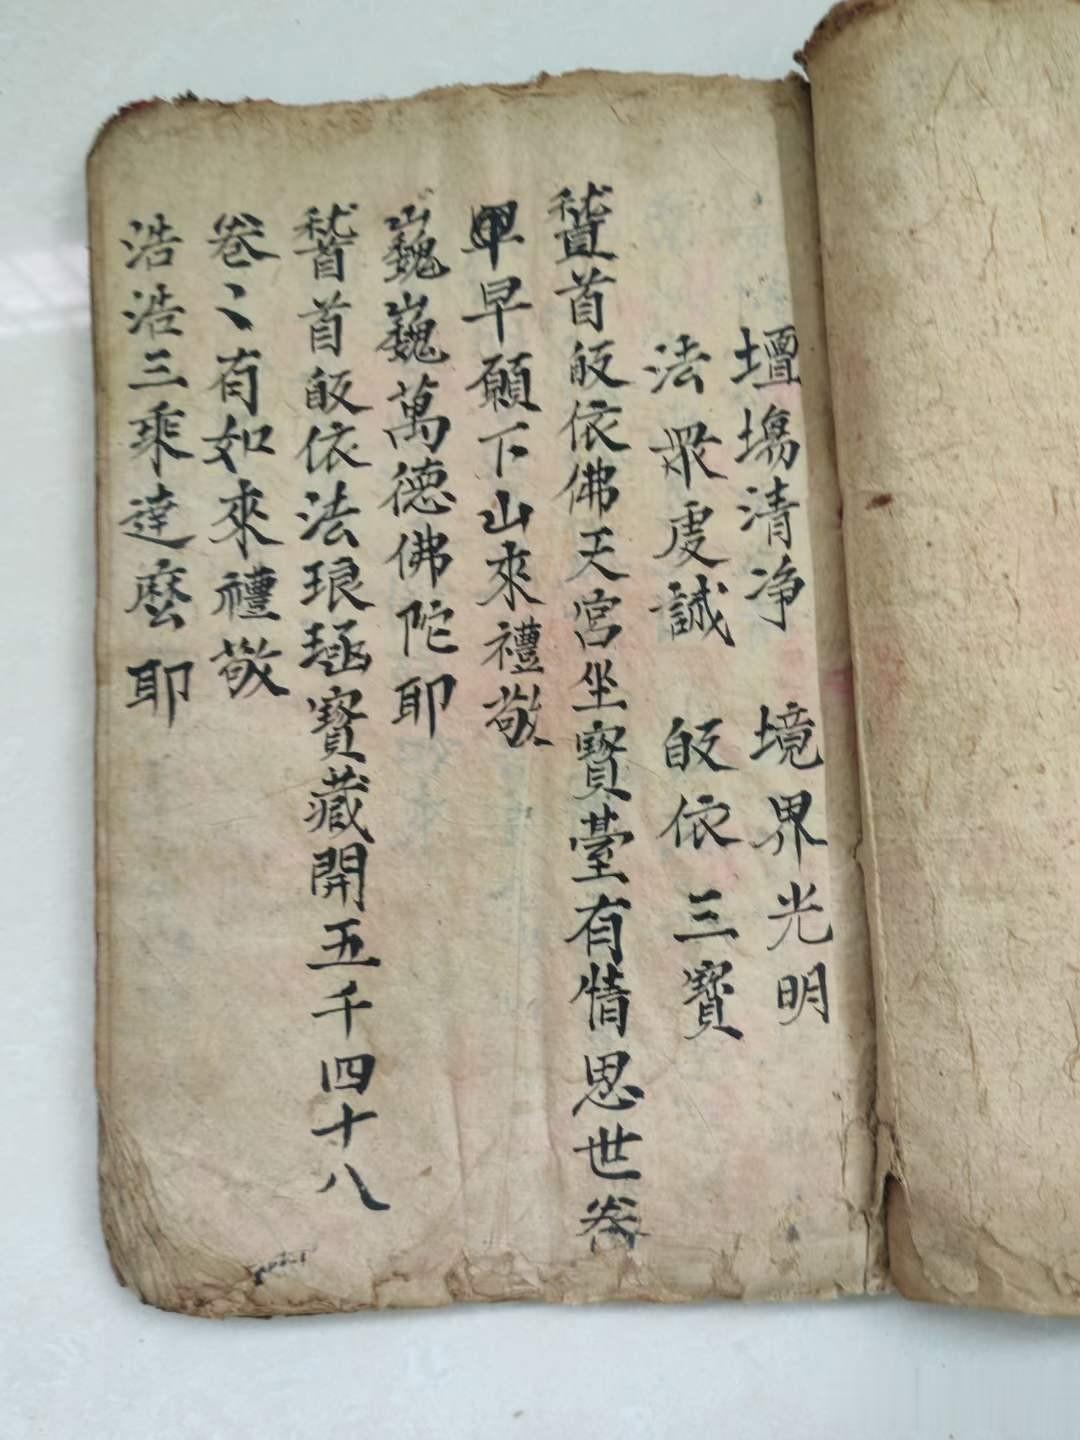 壇場清净　境界光明
法眾虔誠　皈依三寶
稽首皈依佛天宮坐寶臺有情思世
早早願下山來禮敬
巍巍萬德佛陀耶
稽首皈依法琅函寶藏開五千四十八
卷〻有如來禮敬
浩浩三乘達麼耶